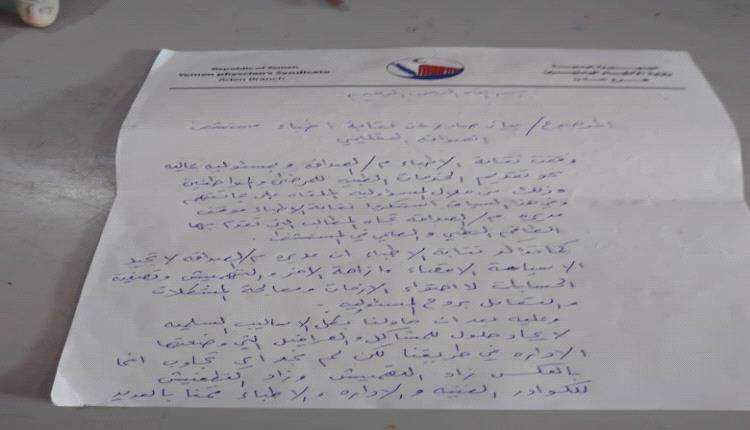 Republic of Yemen
Yemen physician's Syndicate
Aden Branch
الجمهورية اليمنية
نقابة الأطباء اليمنيين
فرع عدن
بسم الله الرحمن الرحيم
الموضوع / بيان صادر عن نقابة اطباء مستشفى
الصداقة التعليمي
وقفت نقابة الاطباء م/الصداقة و بمسئولية عاليه
نحو تقديم الخدمات الطبية للمرضى والمواطنين
وذلك من خلال المسؤولية الملقاه على عاتقهم
وفي هذا السياق استنكرت نقابة الاطباء موقف
مدير م/الصداقة تجاه المطالب التي تقدم بها
الطاقم الطبي و العملي في المستشفى .
كما تؤكد نقابة الاطباء ان مدير م/الصداقة لا تجيد
الا سياسة الاقصاء وازاحة الاخر والتهميش وتصفية
الحسابات لا احتواء الازمات ومعالجة المشكلات
والتعامل بروح المسئولية .
وعليه بعد ان حاولنا بكل الاساليب السلميه
لايجاد حلول للمشاكل والعراقيل التي وضعتها
الاداره في طريقنا لكن لم نجد اي تجاوب انما
بالعكس زاد التهميش وزاد التطفيش
للكوادر الفنيه و الاداره و الاطباء بالعديد